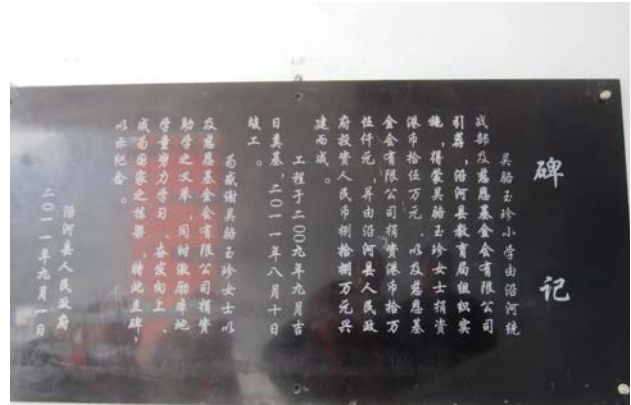 碑记
吴骆玉珍小学由沿河统
战部及慈恩基金会有限公司
引荐，沿河县教育局组织实
施，得蒙吴骆玉珍女士捐资
港币拾伍万元，以及慈恩基
金会有限公司捐资港币拾万
伍仟元，并由沿河县人民政
府投资人民币捌拾捌万元兴
建而成。
工程于二00九年九月吉
日奠基，二0一一年八月十日
竣工。
为感谢吴骆玉珍女士以
及慈恩基金会有限公司捐资
助学之义举，同时激励库地
学童努力学习、奋发向上、
成为国家之栋梁，特此立碑，
以示纪念。
沿河县人民政府
二0一一年九月一日